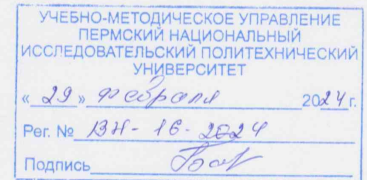 УЧЕБНО-МЕТОДИЧЕСКОЕ УПРАВЛЕНИЕ
ПЕРМСКИЙ НАЦИОНАЛЬНЫЙ
ИССЛЕДОВАТЕЛЬСКИЙ ПОЛИТЕХНИЧЕСКИЙ
УНИВЕРСИТЕТ
«29» февраля 2024 г.
Рег. № ВН-16-2024
Подпись